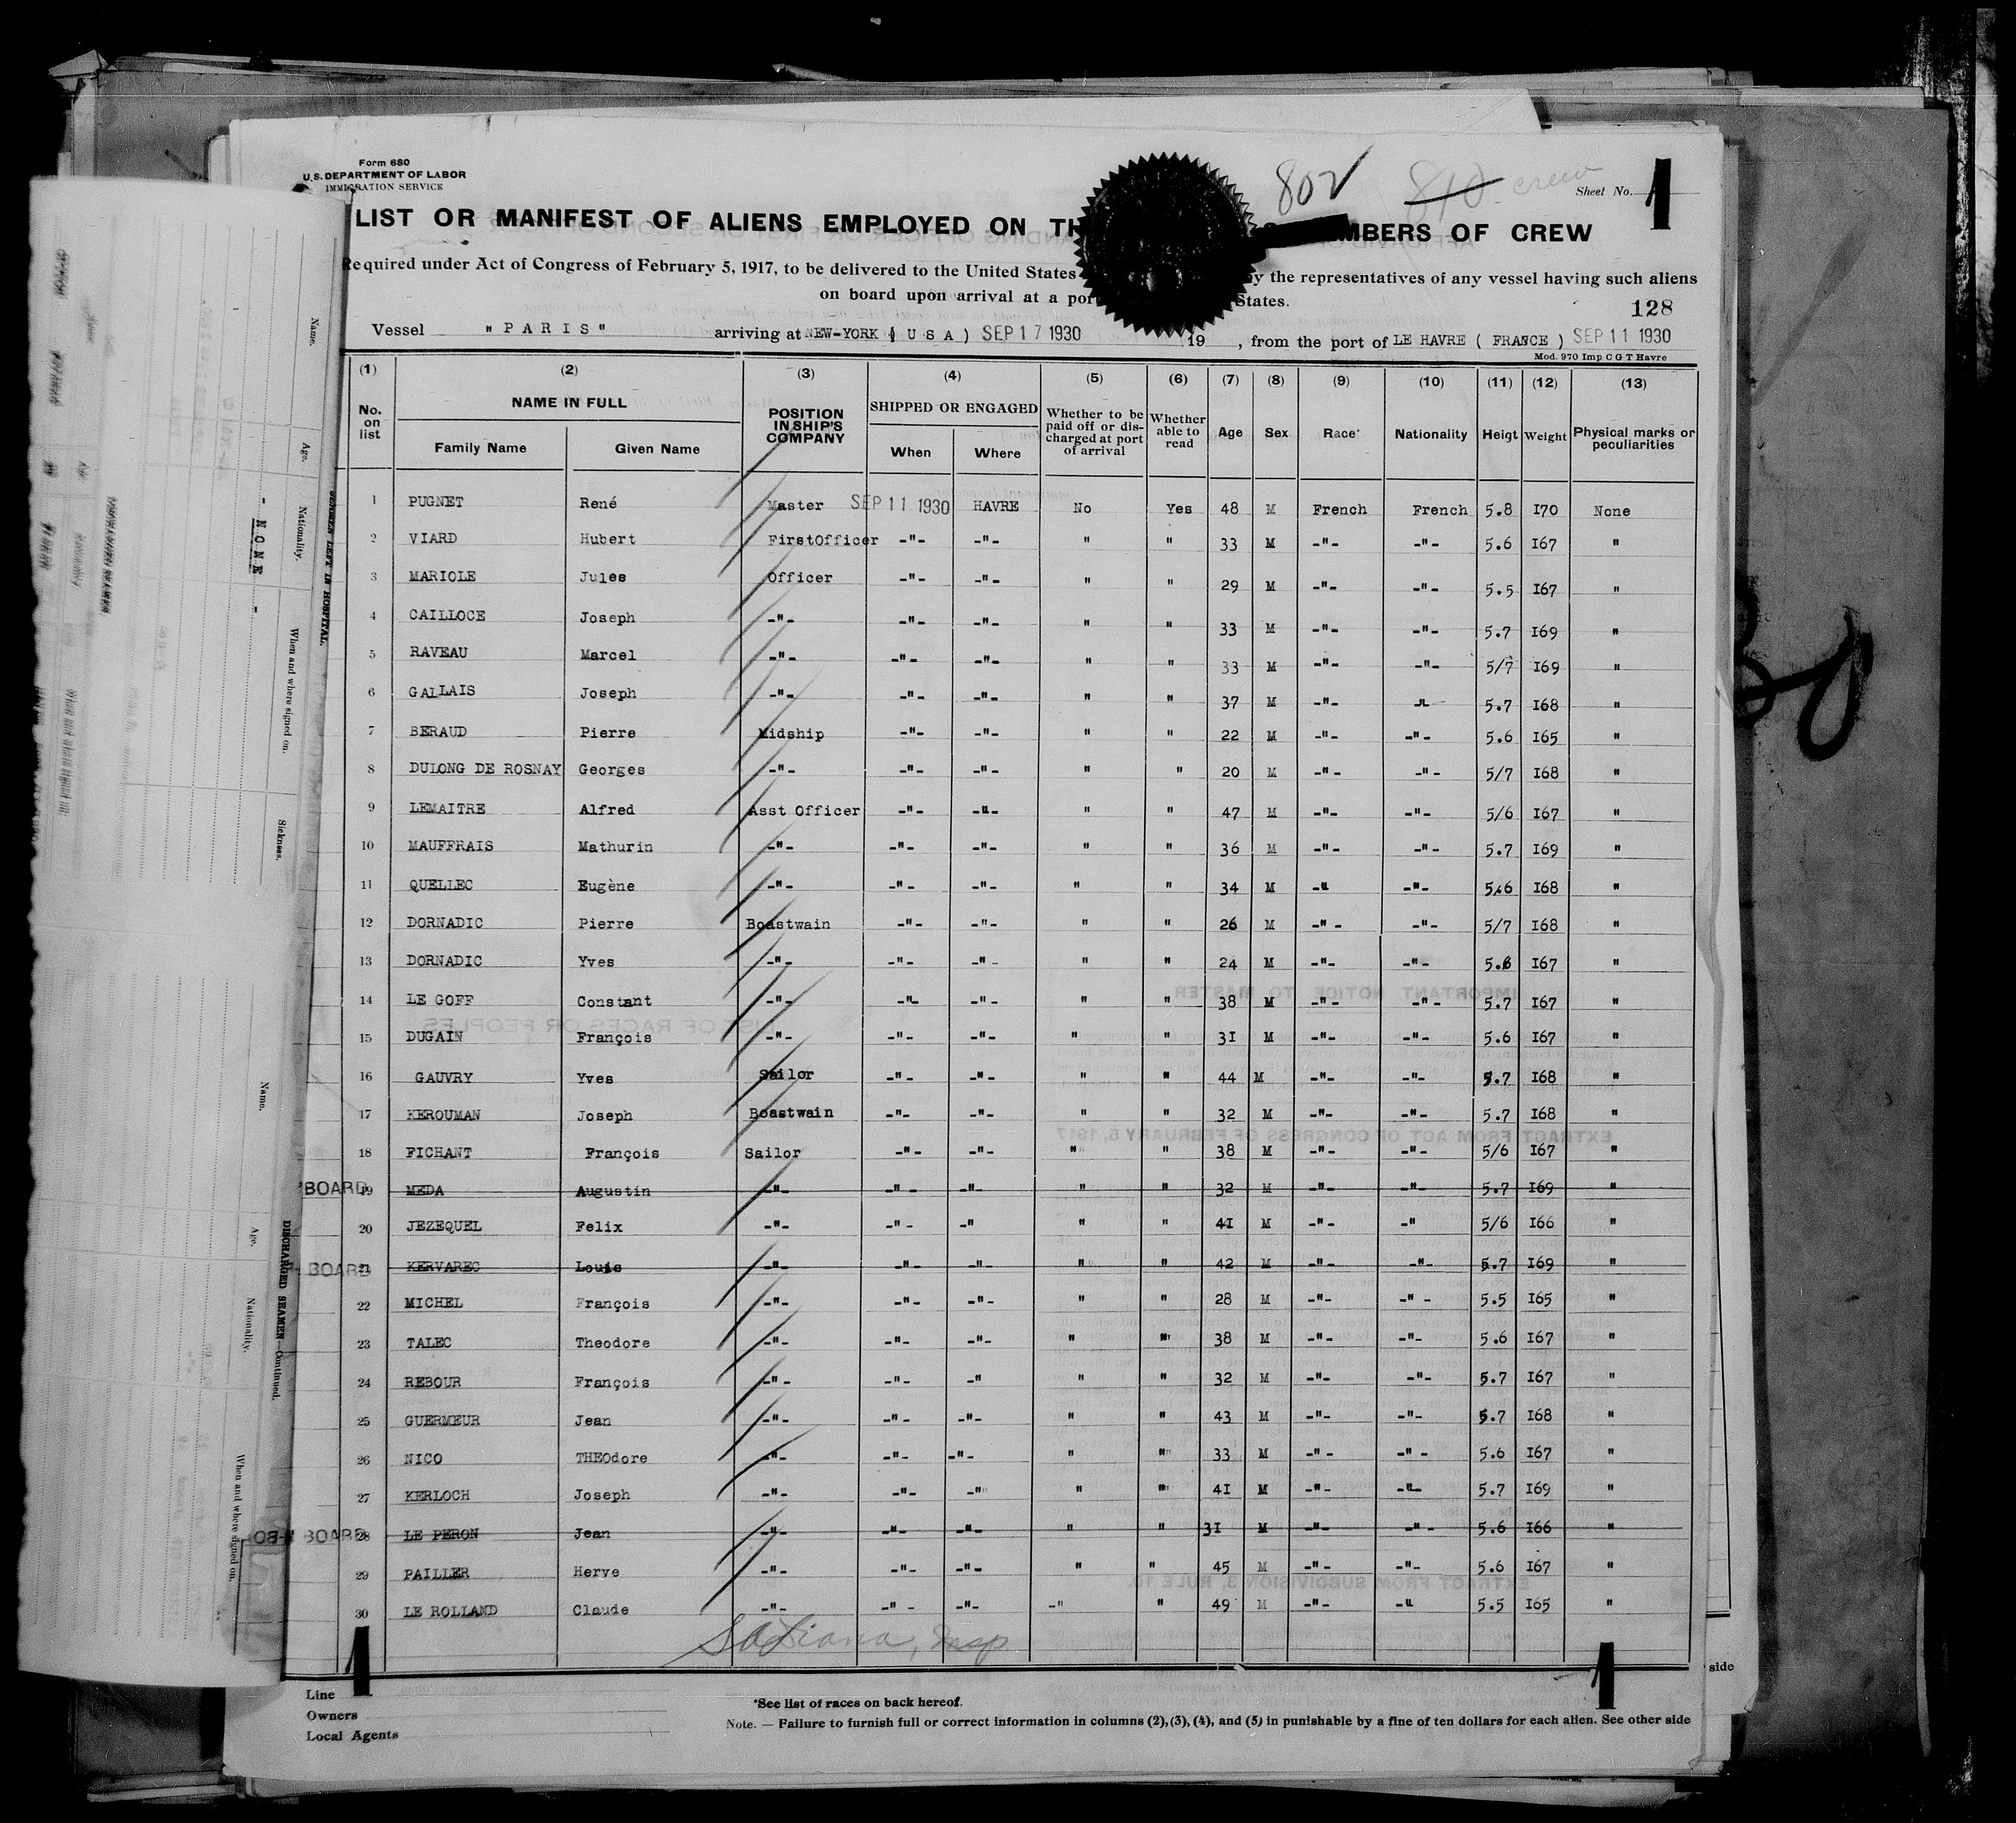 Form 680
U.S. DEPARTMENT OF LABOR
IMMIGRATION SERVICE
802 810 crew
Sheet No. 1
LIST OR MANIFEST OF ALIENS EMPLOYED ON TH MBERS OF CREW
Required under Act of Congress of February 5, 1917, to be delivered to the United States by the representatives of any vessel having such aliens
on board upon arrival at a por States.
128
Vessel "PARIS" arriving at NEW-YORK ( U S A ) SEP 17 1930 19 , from the port of LE HAVRE ( FRANCE ) SEP 11 1930
Mod. 970 Imp C G T Havre
(1) (2) (3) (4) (5) (6) (7) (8) (9) (10) (11) (12) (13)
No. on list NAME IN FULL Family Name Given Name POSITION IN SHIP'S COMPANY SHIPPED OR ENGAGED When Where Whether to be paid off or discharged at port of arrival Whether able to read Age Sex Race* Nationality Heigt Weight Physical marks or peculiarities
1 PUGNET René Master SEP 11 1930 HAVRE No Yes 48 M French French 5.8 I70 None
2 VIARD Hubert FirstOfficer -"- -"- " " 33 M -"- -"- 5.6 I67 "
3 MARIOLE Jules Officer -"- -"- " " 29 M -"- -"- 5.5 I67 "
4 CAILLOCE Joseph -"- -"- -"- " " 33 M -"- -"- 5.7 I69 "
5 RAVEAU Marcel -"- -"- -"- " " 33 M -"- -"- 5/7 I69 "
6 GALLAIS Joseph -"- -"- -"- " " 37 M -"- -"- 5.7 I68 "
7 BERAUD Pierre Midship -"- -"- " " 22 M -"- -"- 5.6 I65 "
8 DULONG DE ROSNAY Georges -"- -"- -"- " " 20 M -"- -"- 5/7 I68 "
9 LEMAITRE Alfred Asst Officer -"- -"- " " 47 M -"- -"- 5/6 I67 "
10 MAUFFRAIS Mathurin -"- -"- -"- " " 36 M -"- -"- 5.7 I69 "
11 QUELLEC Eugène -"- -"- -"- " " 34 M -" -"- 5.6 I68 "
12 DORNADIC Pierre Boastwain -"- -"- " " 26 M -"- -"- 5/7 I68 "
13 DORNADIC Yves -"- -"- -"- " " 24 M -"- -"- 5.6 I67 "
14 LE GOFF Constant -"- -"- -"- " " 38 M -"- -"- 5.7 I67 "
15 DUGAIN François -"- -"- -"- " " 3I M -"- -"- 5.6 I67 "
16 GAUVRY Yves Sailor -"- -"- " " 44 M -"- -"- 5.7 I68 "
17 KEROUMAN Joseph Boastwain -"- -"- " " 32 M -"- -"- 5.7 I68 "
18 FICHANT François Sailor -"- -"- " " 38 M -"- -"- 5/6 I67 "
BOARD 19 MEDA Augustin -"- -"- -"- " " 32 M -"- -"- 5.7 I69 "
20 JEZEQUEL Felix -"- -"- -" " " 4I M -"- -" 5/6 I66 "
BOARD 21 KERVAREC Louis -"- -"- -"- " " 42 M -"- -"- 5.7 I69 "
22 MICHEL François -"- -"- -"- " " 28 M -"- -"- 5.5 I65 "
23 TALEC Theodore -"- -"- -"- " " 38 M -"- -"- 5.6 I67 "
24 REBOUR François -"- -"- -" " " 32 M -"- -"- 5.7 I67 "
25 GUERMEUR Jean -"- -"- -"- " " 43 M -"- -"- 5.7 I68 "
26 NICO THEOdore -"- -"- -"- " " 33 M -"- -"- 5.6 I67 "
27 KERLOCH Joseph -"- -"- -" " " 4I M -"- -"- 5.7 I69 "
BOARD 28 LE PERON Jean -"- -"- -"- " " 3I M -"- -"- 5.6 I66 "
29 PAILLER Herve -"- -"- -"- " " 45 M -"- -"- 5.6 I67 "
30 LE ROLLAND Claude -"- -"- -"- -" " 49 M -"- -" 5.5 I65 "
Insp.
Line
Owners
Local Agents
*See list of races on back hereof.
Note. — Failure to furnish full or correct information in columns (2), (3), (4), and (5) in punishable by a fine of ten dollars for each alien. See other side
side
Name. Age. Nationality. When and where signed on. Sickness.
- NONE -
Name. Age. Nationality. When and where signed on.
DISCHARGED SEAMEN—Continued.